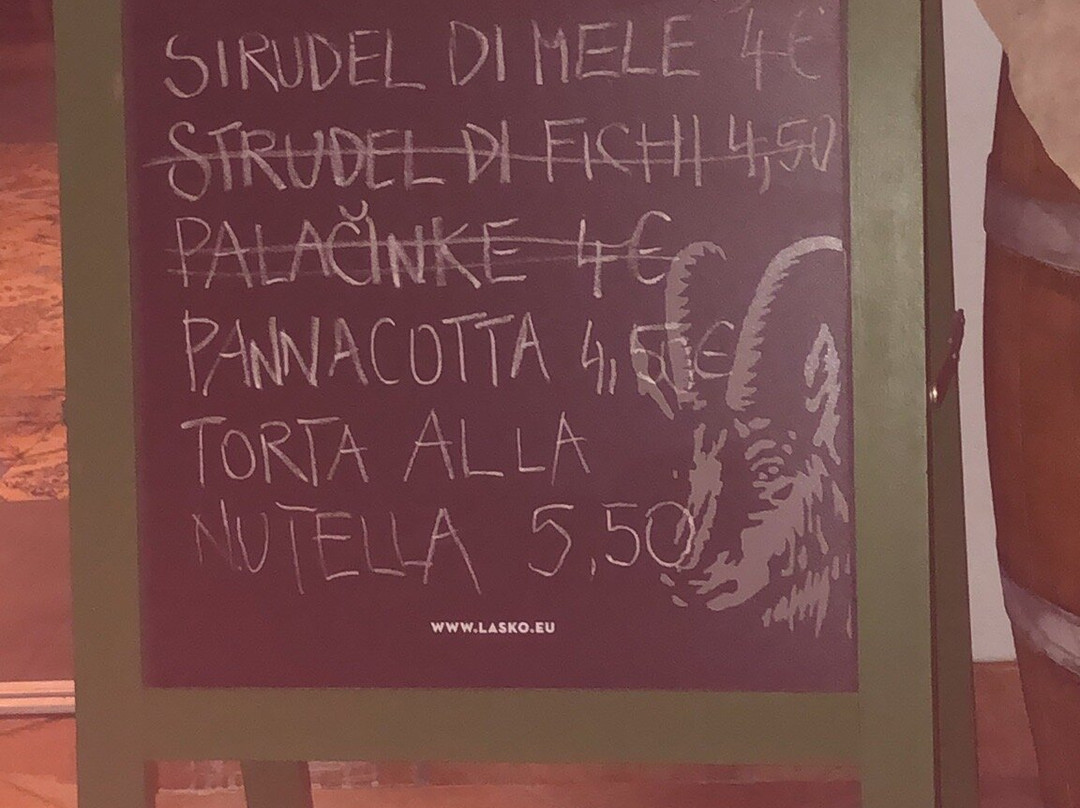 SIRUDEL DI MELE 4€
STRUDEL DI FICHI 4,50
PALAČINKE 4€
PANNACOTTA 4,50€
TORTA ALLA
NUTELLA 5,50
WWW.LASKO.EU